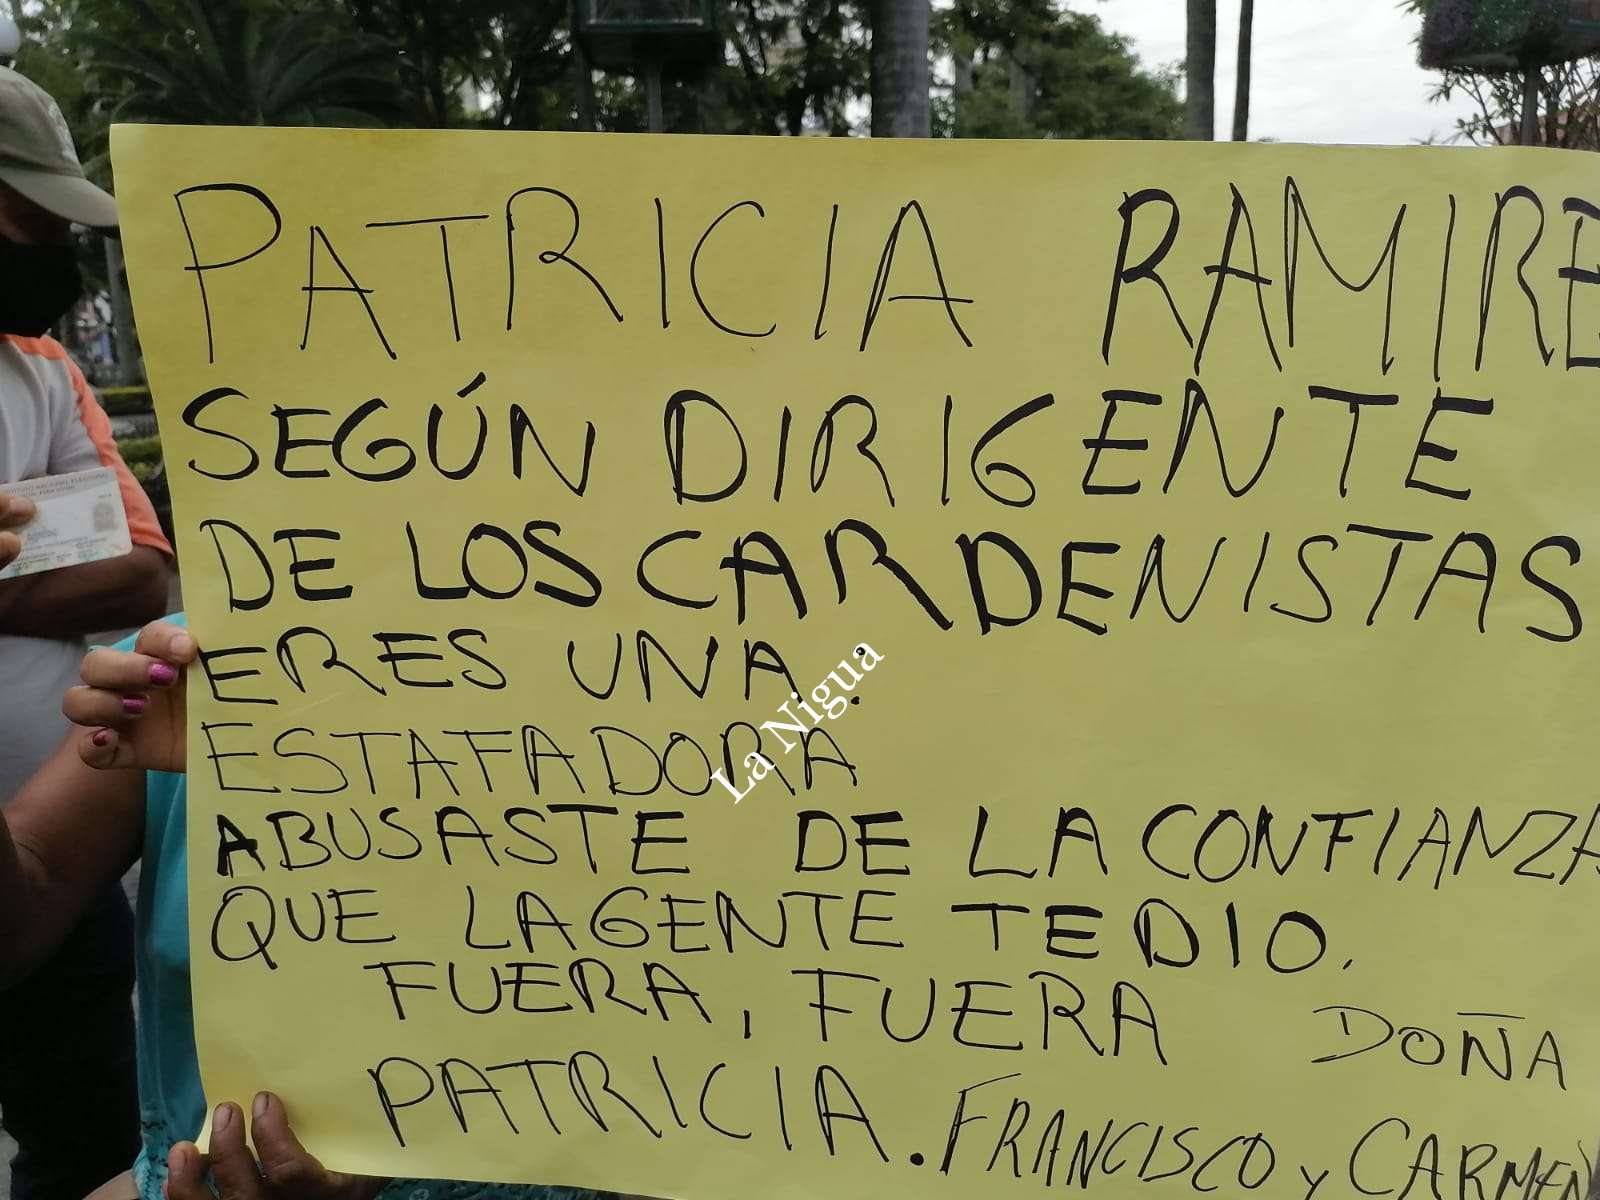 PATRICIA RAMIRE
SEGÚN DIRIGENTE
DE LOS CARDENISTAS
ERES UNA:
ESTAFADORA
ABUSASTE DE LA CONFIANZA
QUE LA GENTE TE DIO.
FUERA, FUERA DOÑA
PATRICIA. FRANCISCO Y CARMEN
La Nigua
INSTITUTO NACIONAL ELECTORAL